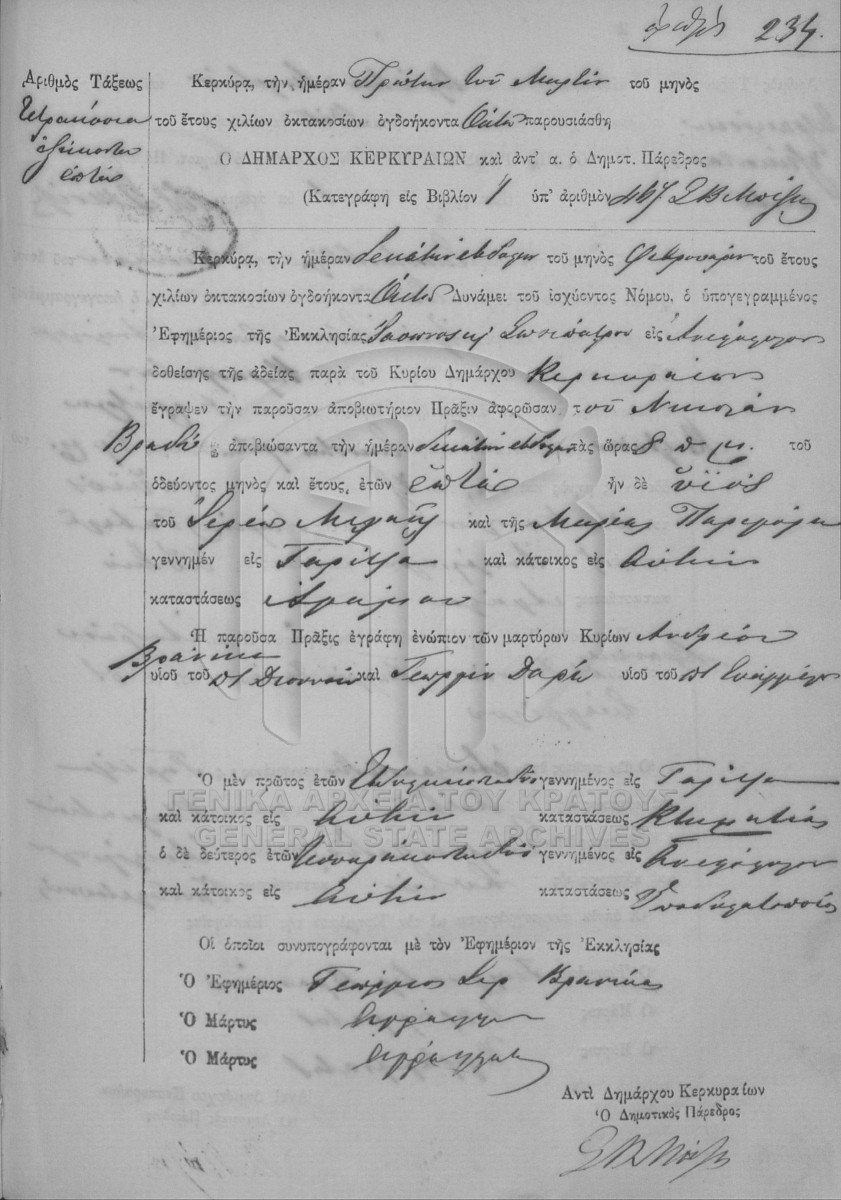 ἀριθμός 234.
Ἀριθμὸς Τάξεως
Τετρακόσια
ἑξήκοντα
ἑπτά
Κερκύρᾳ, τὴν ἡμέραν Πρώτην τοῦ Μαρτίου τοῦ μηνὸς
τοῦ ἔτους χιλίων ὀκτακοσίων ὀγδοήκοντα Ὀκτὼ παρουσιάσθη
Ὁ ΔΗΜΑΡΧΟΣ ΚΕΡΚΥΡΑΙΩΝ καὶ ἀντ' α. ὁ Δημοτ. Πάρεδρος
(Κατεγράφη εἰς Βιβλίον 1 ὑπ' ἀριθμὸν 467
Κερκύρᾳ, τὴν ἡμέραν Δεκάτην εβδόμην τοῦ μηνὸς Φεβρουαρίου τοῦ ἔτους
χιλίων ὀκτακοσίων ὀγδοήκοντα Ὀκτὼ Δυνάμει τοῦ ἰσχύοντος Νόμου, ὁ ὑπογεγραμμένος
Ἐφημέριος τῆς Ἐκκλησίας Ἰάσωνος κ Σωσιπάτρου εἰς Ἀνεμόμυλον
δοθείσης τῆς ἀδείας παρὰ τοῦ Κυρίου Δημάρχου Κερκυραίων
ἔγραψεν τὴν παροῦσαν ἀποβιωτήριον Πρᾶξιν ἀφορῶσαν τοῦ Νικολάου
ἀποβιώσαντα τὴν ἡμέραν Δεκάτην εβδόμην τὰς ὥρας 8 π. μ. τοῦ
ὁδεύοντος μηνὸς καὶ ἔτους, ἐτῶν ἑπτά ἦν δὲ ὑϊὸς
τοῦ καὶ τῆς Μαρίας
γεννημέν εἰς Γαρίτσα καὶ κάτοικος εἰς Αὐτὴν
καταστάσεως Ἀγάμου
Ἡ παροῦσα Πρᾶξις ἐγράφη ἐνώπιον τῶν μαρτύρων Κυρίων Ἀνδρέου
Βρανίκα
υἱοῦ τοῦ Διονυσίου καὶ Γεωργίου υἱοῦ τοῦ
Ὁ μὲν πρῶτος ἐτῶν γεννημένος εἰς Γαρίτσα
καὶ κάτοικος εἰς Αὐτὴν καταστάσεως Κτηματίας
ὁ δὲ δεύτερος ἐτῶν γεννημένος εἰς Ἀνεμόμυλον
καὶ κάτοικος εἰς Αὐτὴν καταστάσεως Ὑποδηματοποιός
Οἱ ὁποῖοι συνυπογράφονται μὲ τὸν Ἐφημέριον τῆς Ἐκκλησίας
Ὁ Ἐφημέριος Γεώργιος Ιερ Βρανίκας
Ὁ Μάρτυς
Ὁ Μάρτυς
Ἀντὶ Δημάρχου Κερκυραίων
Ὁ Δημοτικὸς Πάρεδρος
ΓΕΝΙΚΑ ΑΡΧΕΙΑ ΤΟΥ ΚΡΑΤΟΥΣ
GENERAL STATE ARCHIVES